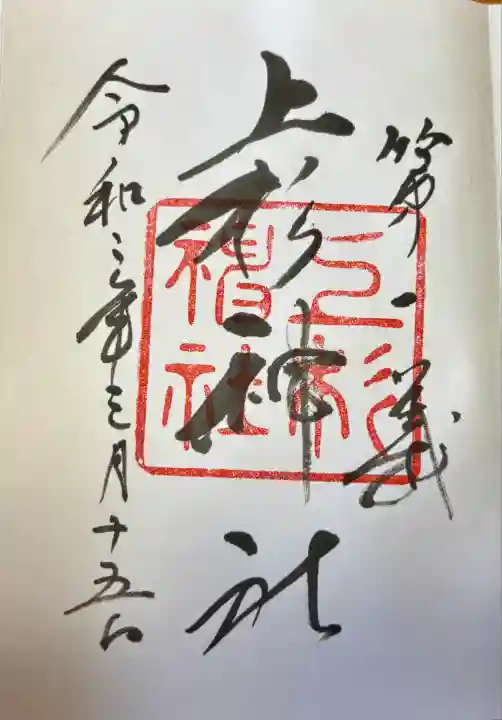 第一義
上杉神社
上杉神社
令和三年三月十五日